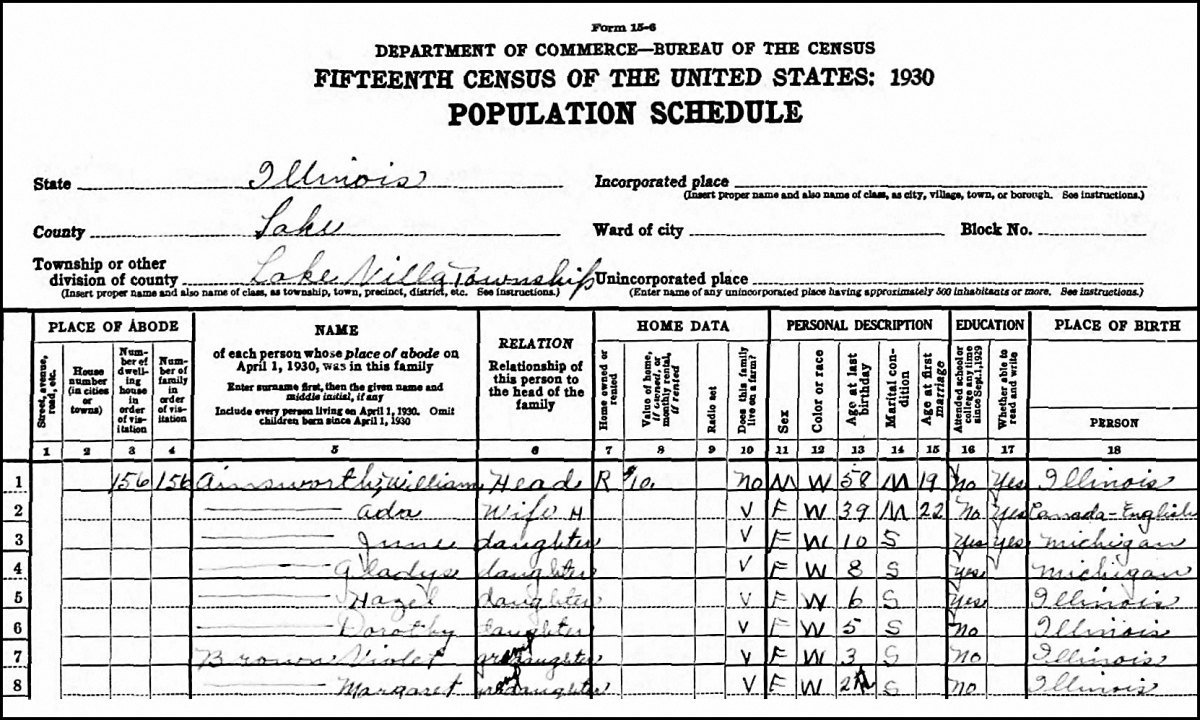 Form 15-6
DEPARTMENT OF COMMERCE—BUREAU OF THE CENSUS
FIFTEENTH CENSUS OF THE UNITED STATES: 1930
POPULATION SCHEDULE
State Illinois
Incorporated place
(Insert proper name and also name of class, as city, village, town, or borough. See instructions.)
County Lake
Ward of city
Block No.
Township or other
division of county Lake Villa Township
(Insert proper name and also name of class, as township, town, precinct, district, etc. See instructions.)
Unincorporated place
(Enter name of any unincorporated place having approximately 500 inhabitants or more. See instructions.)
PLACE OF ABODE
Street, avenue, road, etc.
House number (in cities or towns)
Num-
ber of
dwell-
ing
house in
order
of vis-
itation
Num-
ber of
family
in
order
of vis-
itation
NAME
of each person whose place of abode on
April 1, 1930, was in this family
Enter surname first, then the given name and
middle initial, if any
Include every person living on April 1, 1930. Omit
children born since April 1, 1930
RELATION
Relationship of
this person to
the head of the
family
HOME DATA
Home owned or rented
Value of home, if owned, or monthly rental, if rented
Radio set
Does this family live on a farm?
PERSONAL DESCRIPTION
Sex
Color or race
Age at last birthday
Marital con-
dition
Age at first marriage
EDUCATION
Attended school or college any time since Sept. 1, 1929
Whether able to read and write
PLACE OF BIRTH
PERSON
1 2 3 4 5 6 7 8 9 10 11 12 13 14 15 16 17 18
1 156 156 Ainsworth, William Head R $10. No M W 58 M 19 No Yes Illinois
2 Ada Wife H V F W 39 M 22 No Yes Canada-English
3 June daughter V F W 10 S Yes Yes Michigan
4 Gladys daughter V F W 8 S Yes Michigan
5 Hazel daughter V F W 6 S Yes Illinois
6 Dorothy daughter V F W 5 S No Illinois
7 Brown Violet granddaughter V F W 3 S No Illinois
8 Margaret granddaughter V F W S No Illinois